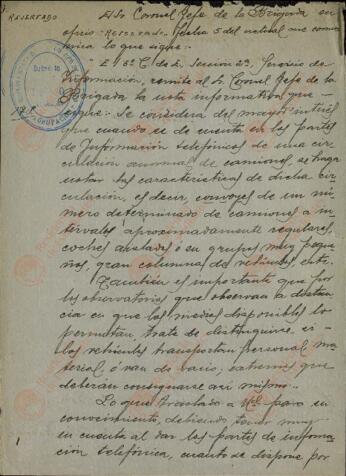 RESERVADO
El Sr Coronel Jefe de la Brigada en
oficio RESERVADO fecha 5 del actual me comu-
nica lo que sigue:
El 5º C. de E. Sección 2ª, Servicio de
Información, remite al Sr Coronel Jefe de la
Brigada la nota informativa que
sigue: Se considera del mayor interés
que cuando se de cuenta en los partes
de Información telefónicos de una cir-
culación anormal de camiones, se haga
constar las características de dicha cir-
culación, es decir, convoyes de un nú-
mero determinado de camiones a in-
tervalos aproximadamente regulares,
coches aislados ó en grupos muy peque-
ños, gran columna de vehículos, etc.
También es importante que por
los observatorios que observan a distan-
cia en que los medios disponibles lo
permitan, trate de distinguirse, si
los vehículos transportan personal, ma-
terial, ó van de vacio, extremos que
deberán consignarse así mismo.
Lo que traslado a Vd. para su
conocimiento, debiendo tener muy
en cuenta al dar los partes de infor-
mación telefónica, cuanto se dispone por